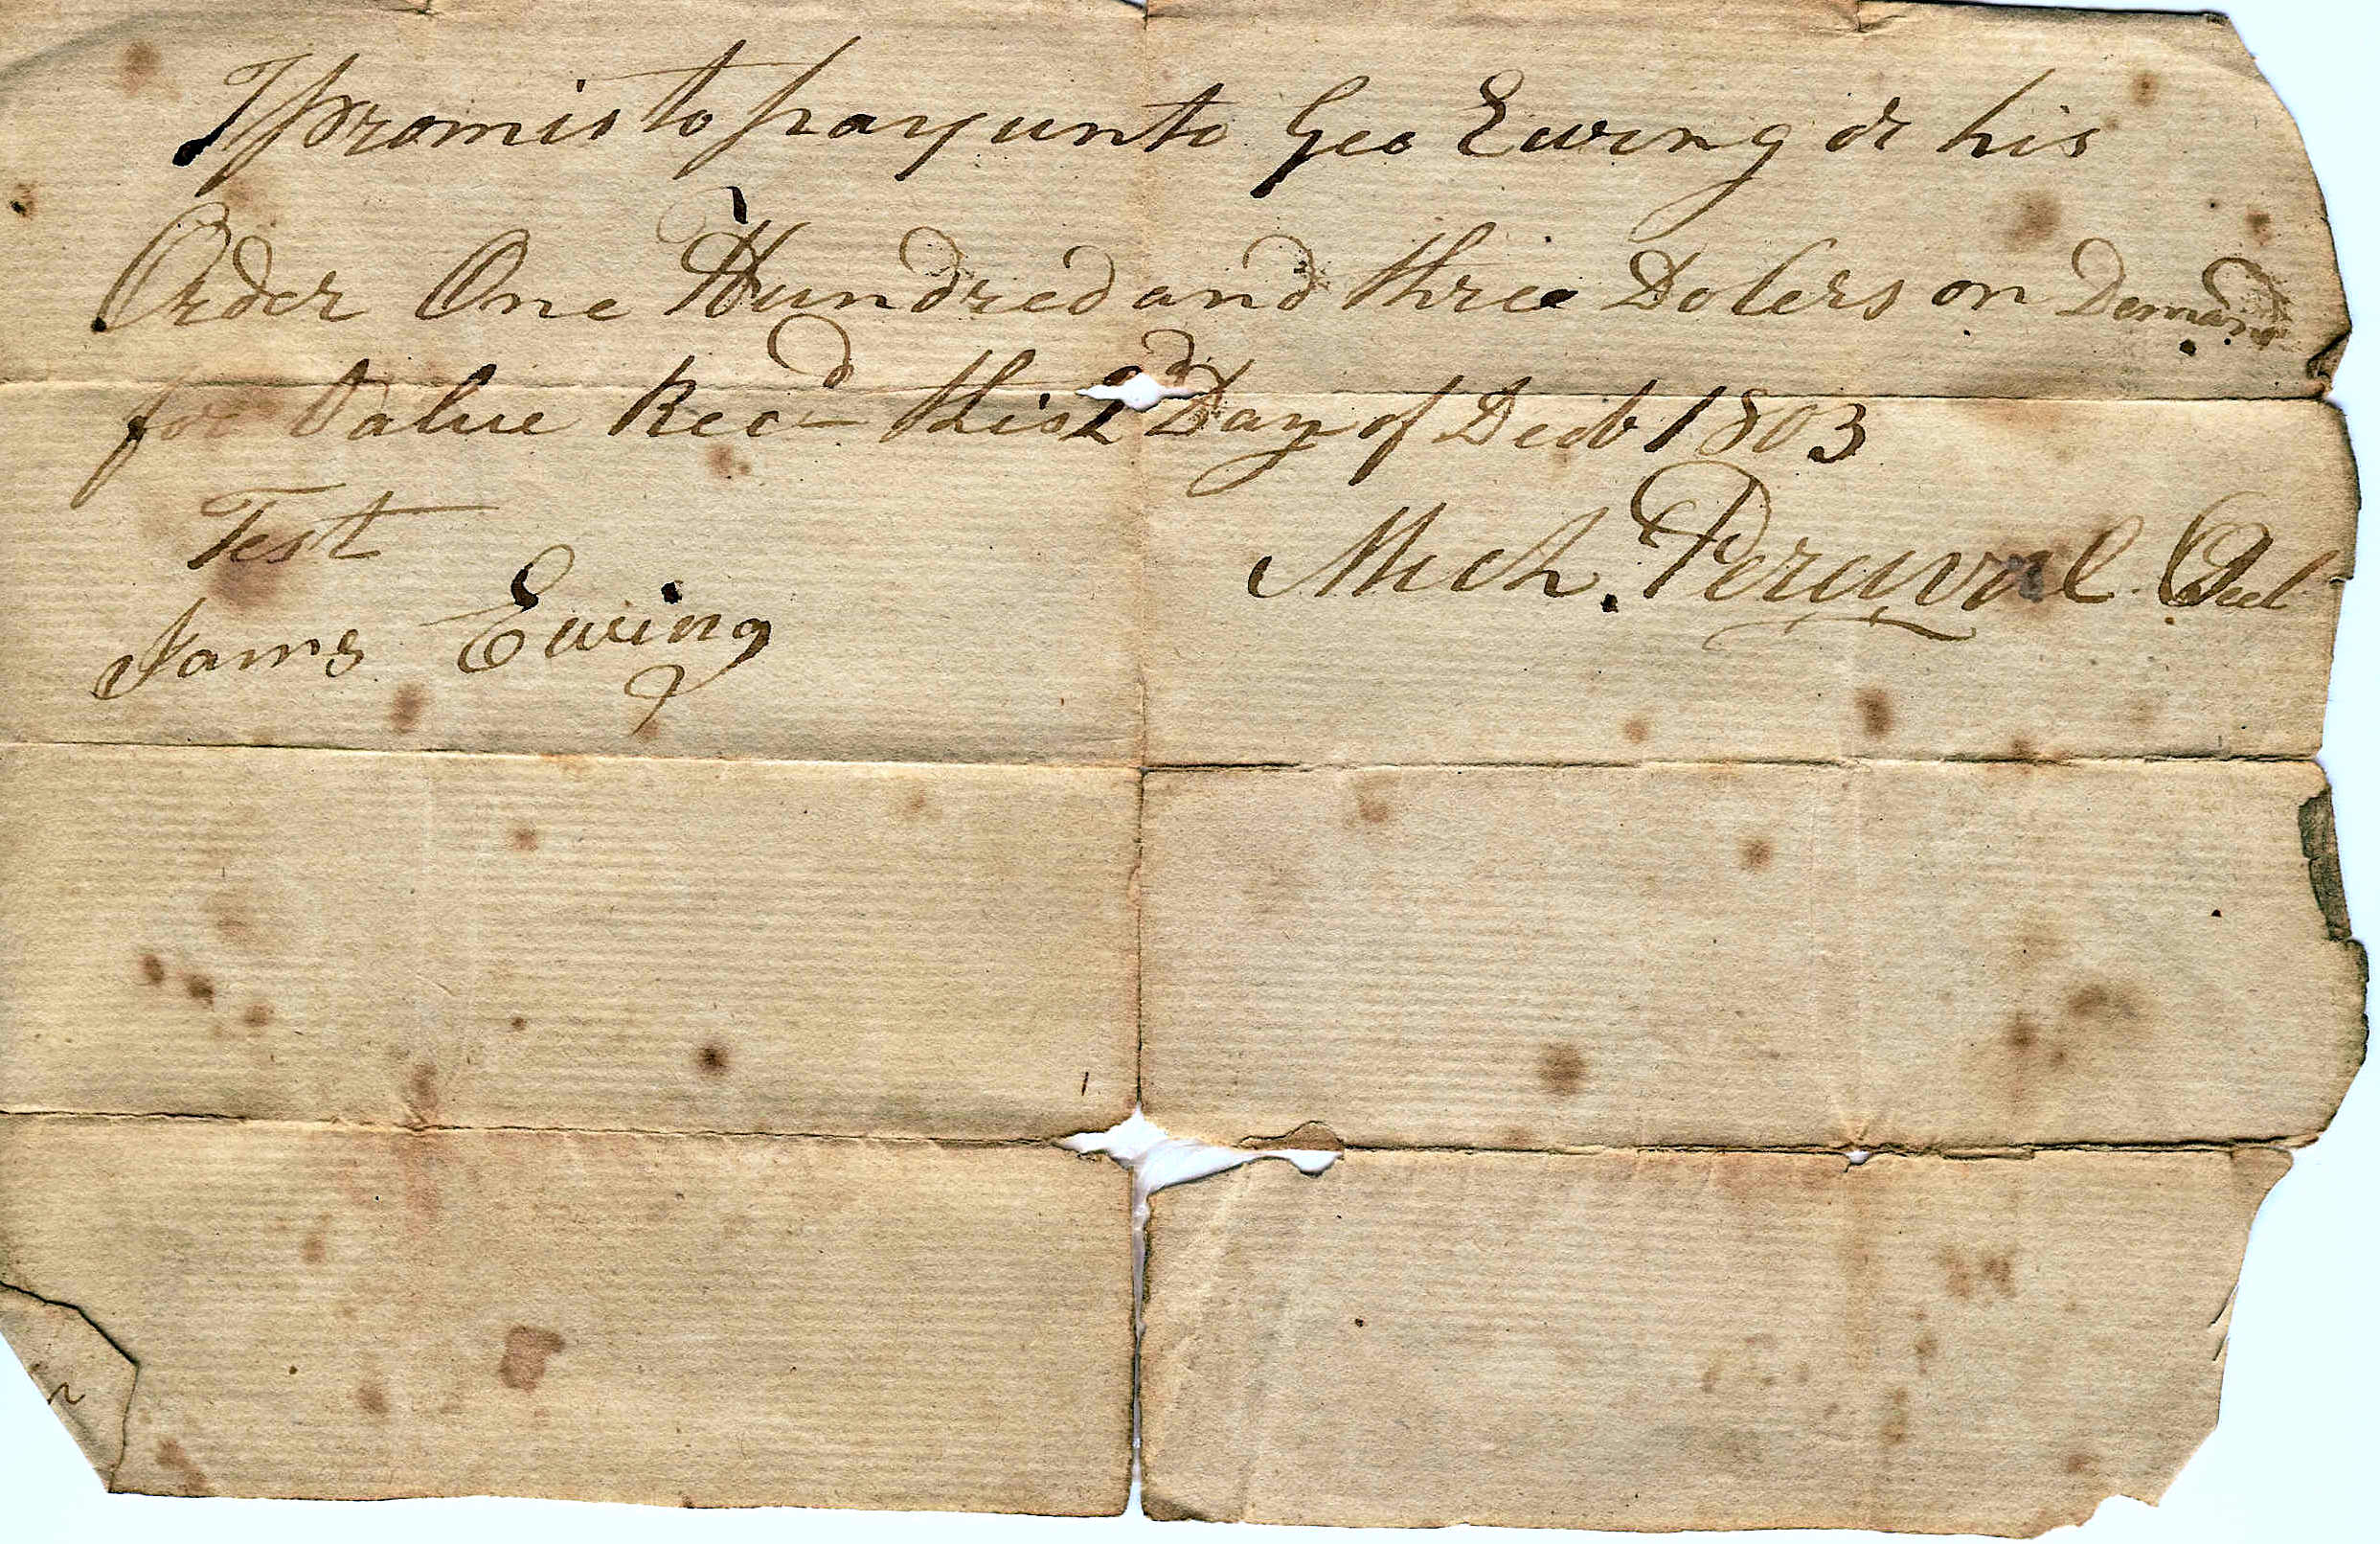 I promis to pay unto Geo Ewing or his
Order One Hundred and three Dolers on Demand
for Value Recd this 2d Day of Decb 1803
Test
Mich. Percyval
Jams Ewing